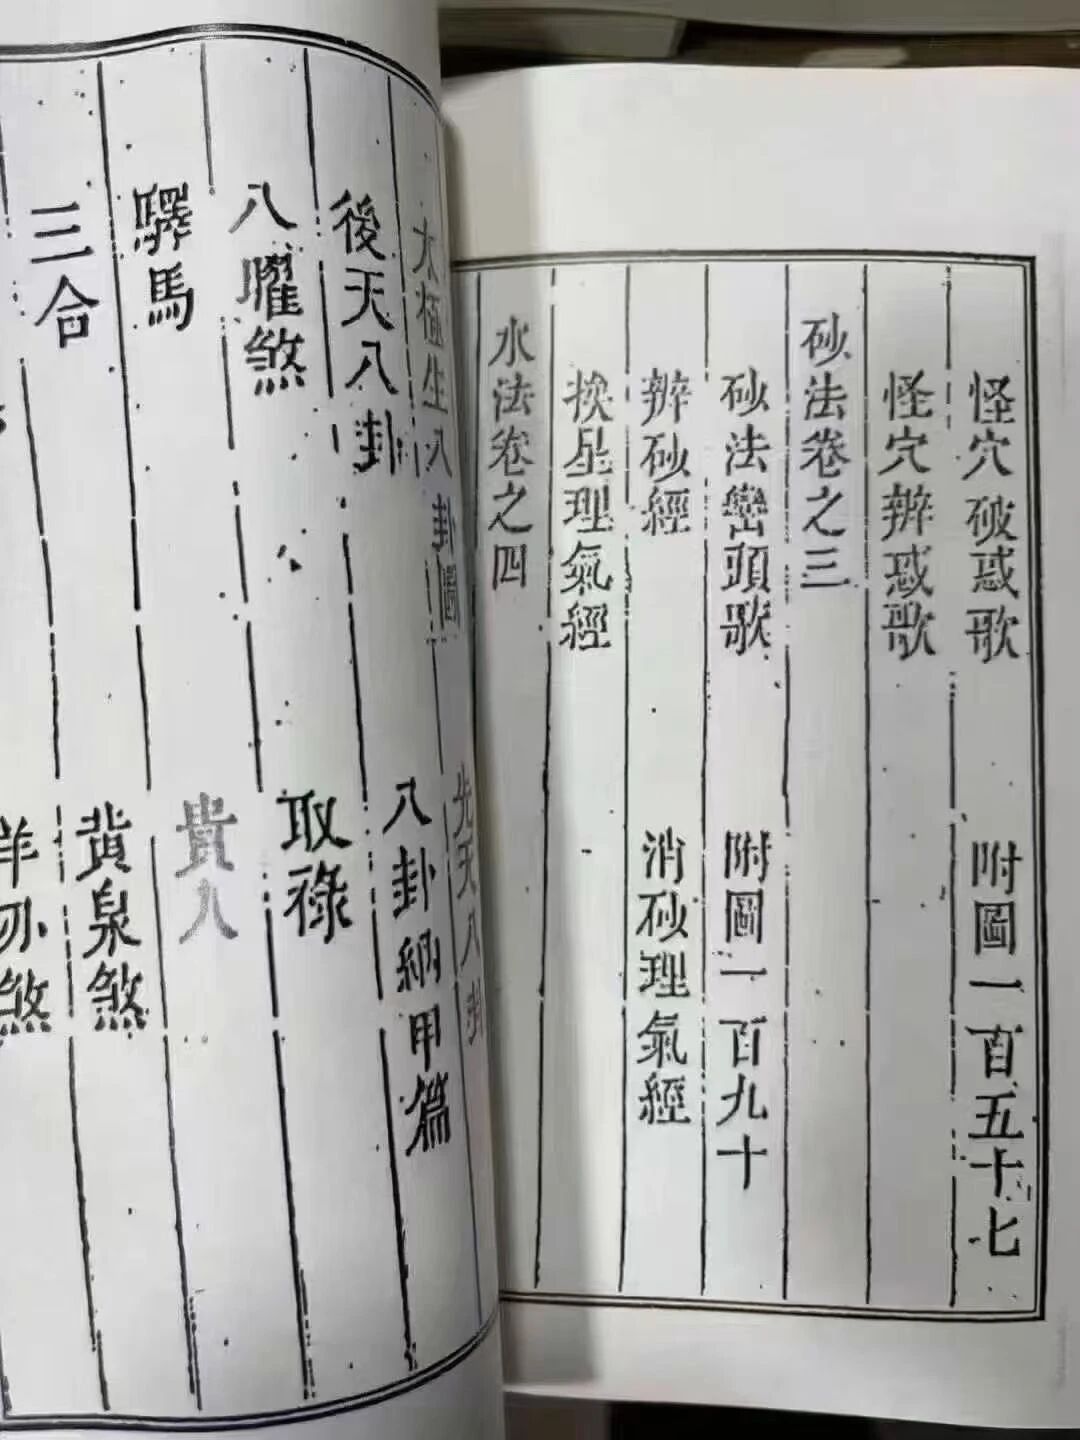 怪穴破惑歌 附圖一百五十七
怪穴辨惑歌
砂法卷之三
砂法巒頭歌 附圖一百九十
辨砂經 消砂理氣經
挨星理氣經
水法卷之四
太極生八卦圖 先天八卦
後天八卦 八卦納甲篇
八曜煞 取祿
驛馬 貴人
三合 黃泉煞
羊刃煞